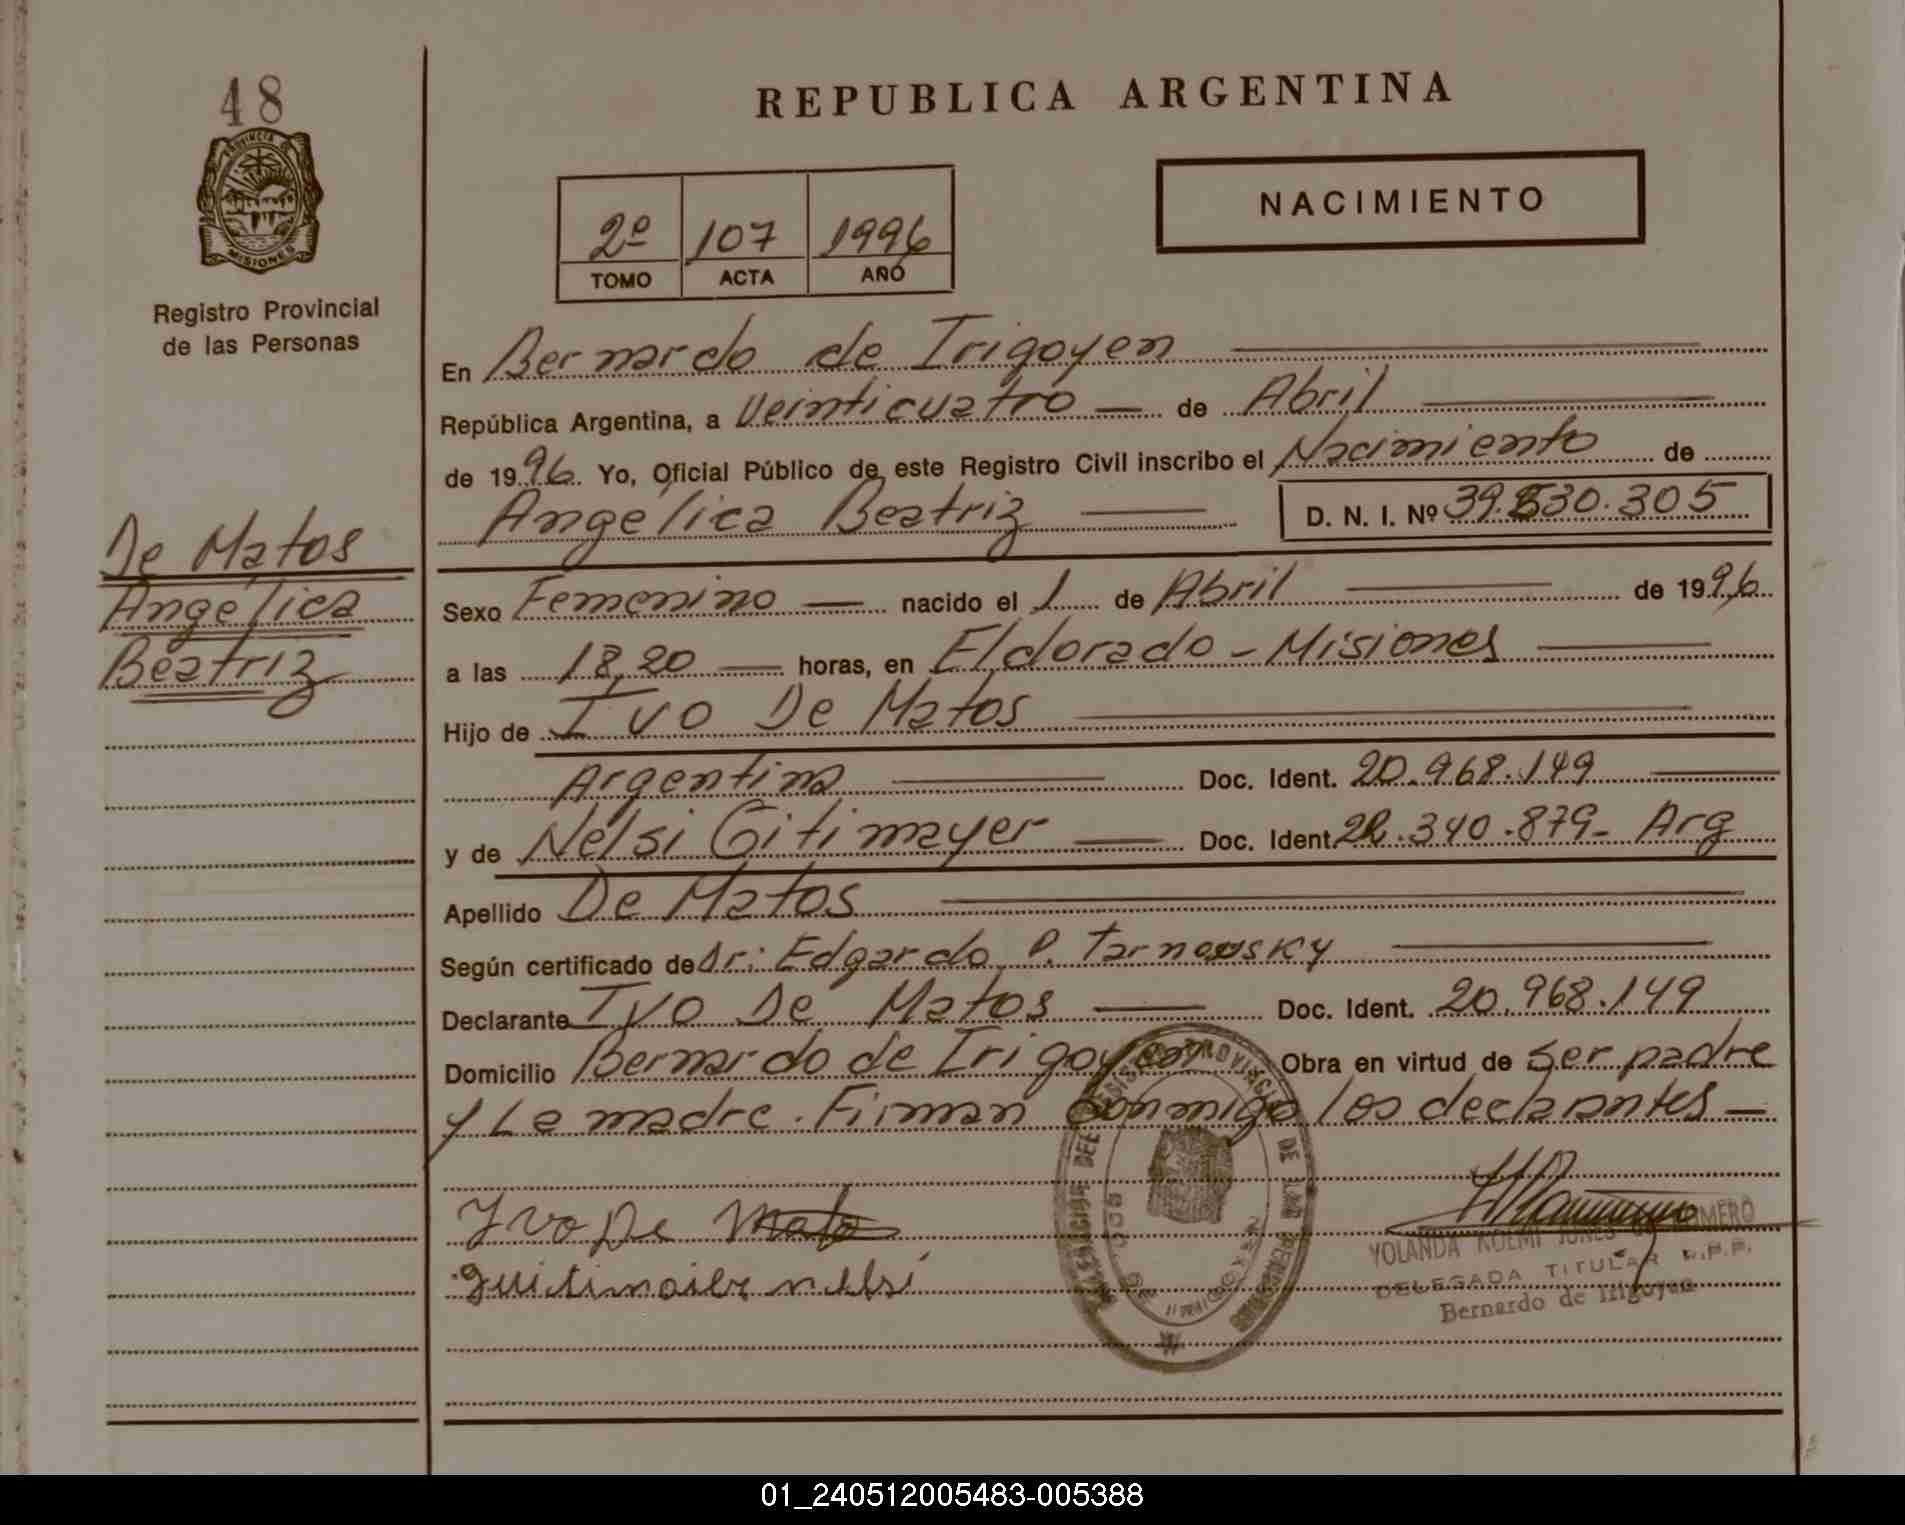 48
PROVINCIA DE
MISIONES
Registro Provincial
de las Personas
De Matos
Angélica
Beatriz
REPUBLICA ARGENTINA
NACIMIENTO
2º 107 1996
TOMO ACTA AÑO
En Bernardo de Irigoyen
República Argentina, a Veinticuatro — de Abril
de 1996. Yo, Oficial Público de este Registro Civil inscribo el Nacimiento de
Angélica Beatriz — D. N. I. Nº 39.530.305
Sexo Femenino — nacido el 1 de Abril — de 1996
a las 18,20 — horas, en Eldorado - Misiones
Hijo de Ivo De Matos
Argentino — Doc. Ident. 20.968.149
y de Nelsi Gitimayer — Doc. Ident. 22.340.879- Arg
Apellido De Matos
Según certificado de Dr: Edgardo P. Tarnowsky
Declarante Ivo De Matos — Doc. Ident. 20.968.149
Domicilio Bernardo de Irigoyen Obra en virtud de Ser padre
y La madre. Firman conmigo los declarantes —
Yvo De Mato
guitimaier nelsi
YOLANDA NOEMI
DELEGADA TITULAR R.P.P.
Bernardo de Irigoyen
01_240512005483-005388